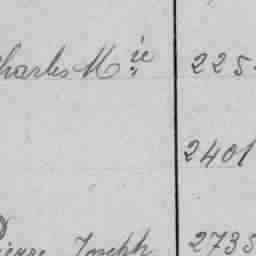 Charles Mie 225
2401
Pierre Joseph 2735